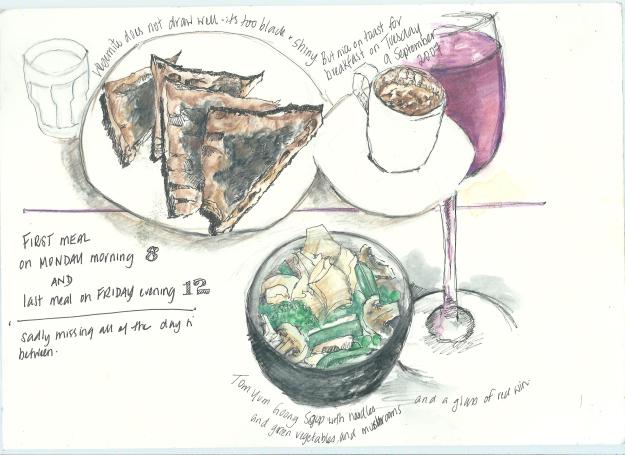 Vegemite does not draw well - its too black + shiny
But nice on toast for
breakfast on Tuesday
9 September
2007
FIRST MEAL
on MONDAY morning 8
AND
last meal on FRIDAY evening 12
sadly missing all of the day in
between.
Tom Yum Goong Soup with noodles
and green vegetables, and mushrooms
and a glass of red wine